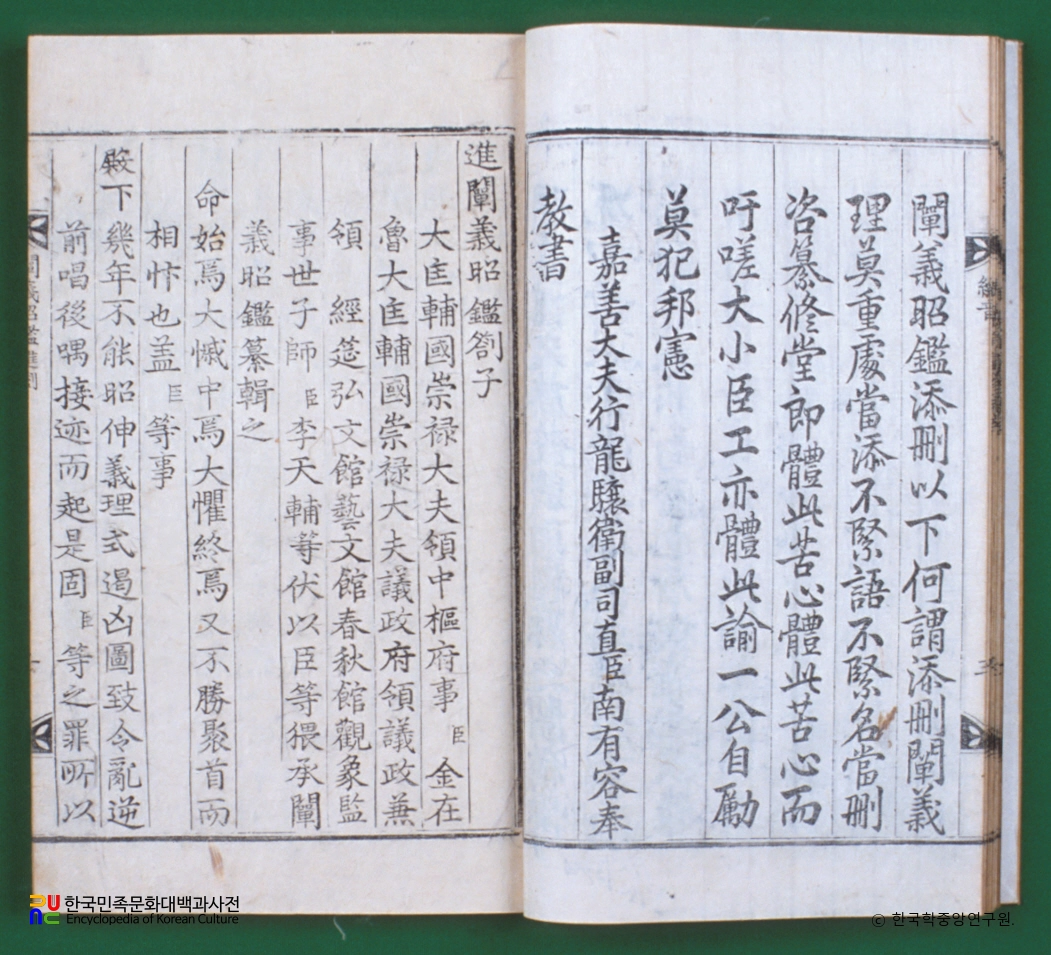 闡義昭鑑添刪以下何謂添刪闡義
理莫重處當添不緊語不緊名當刪
咨纂修堂郎體此苦心體此苦心而
吁嗟大小臣工亦體此諭一公自勵
莫犯邦憲
嘉善大夫行龍驤衛副司直臣南有容奉
教書
進闡義昭鑑劄子
大匡輔國崇祿大夫領中樞府事臣金在
魯大匡輔國崇祿大夫議政府領議政兼
領經筵弘文館藝文館春秋館觀象監
事世子師臣李天輔等伏以臣等猥承闡
義昭鑑纂輯之
命始焉大慽中焉大懼終焉又不勝聚首而
相忭也盖臣等事
殿下幾年不能昭伸義理式遏凶圖致令亂逆
前唱後喁接迹而起是固臣等之罪所以
闡義昭鑑進劄
한국민족문화대백과사전
Encyclopedia of Korean Culture
© 한국학중앙연구원.